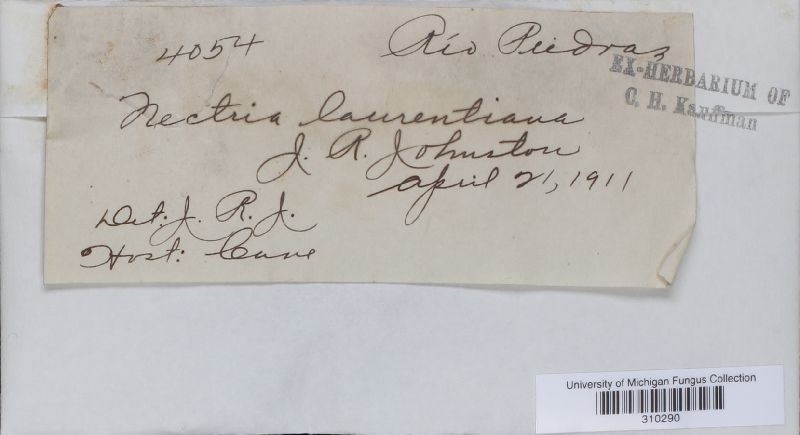 4054 Río Piedras
EX-HERBARIUM OF
C. H. Kauffman
Nectria laurentiana
J. R. Johnston
April 21, 1911
Det: J. R. J.
Host: Cane
University of Michigan Fungus Collection
310290